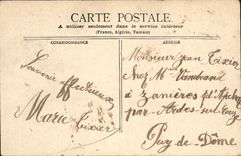 CARTE POSTALE
A utiliser seulement dans le service intérieur
(France, Algérie, Tunisie)
CORRESPONDANCE
ADRESSE
Souvenir affectueux
Marie Tixier
Monsieur Jean Tixier
chez Mr
à Zanières
par Ardes-sur-Couze
Puy-de-Dôme